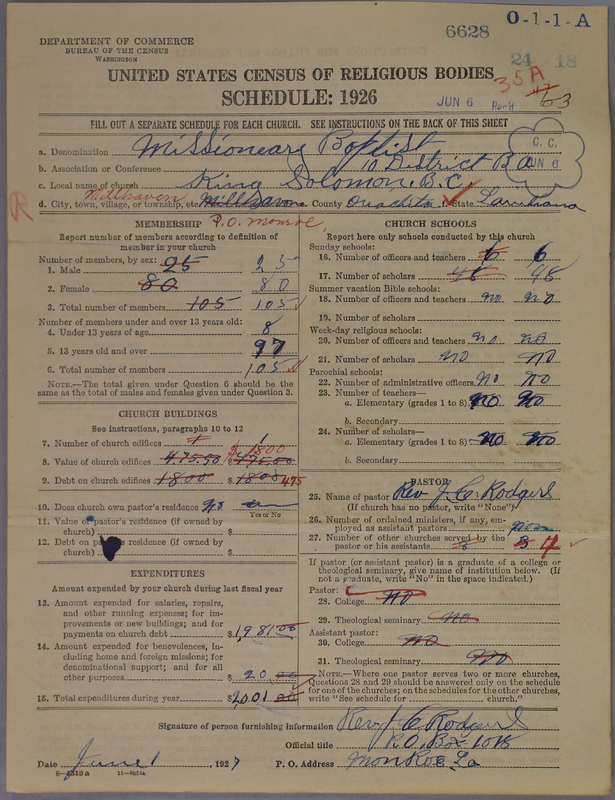 6628 O-1-1-A
DEPARTMENT OF COMMERCE
BUREAU OF THE CENSUS
WASHINGTON
24 18
35A
UNITED STATES CENSUS OF RELIGIOUS BODIES
SCHEDULE: 1926
JUN 6 Rec'd 63
FILL OUT A SEPARATE SCHEDULE FOR EACH CHURCH. SEE INSTRUCTIONS ON THE BACK OF THIS SHEET
C. C.
JUN 6
a. Denomination Missioneary Baptist
b. Association or Conference 10 District B A
c. Local name of church King Solomon. B. C.
Millhaven
d. City, town, village, or township, etc. County Ouachita State Louisiana
R
P.O. Monroe
MEMBERSHIP
Report number of members according to definition of
member in your church
Number of members, by sex:
1. Male 25 25
2. Female 80 80
3. Total number of members 105 105
Number of members under and over 13 years old:
4. Under 13 years of age 8
5. 13 years old and over 97
6. Total number of members 105
NOTE.—The total given under Question 6 should be
the same as the total of males and females given under Question 3.
CHURCH BUILDINGS
See instructions, paragraphs 10 to 12
7. Number of church edifices 1 1
$1800
8. Value of church edifices 475.50 $475.00
9. Debt on church edifices 1800 $1800 475
10. Does church own pastor's residence no
Yes or No
11. Value of pastor's residence (if owned by
church) $
12. Debt on pastor's residence (if owned by
church) $
EXPENDITURES
Amount expended by your church during last fiscal year
13. Amount expended for salaries, repairs,
and other running expenses; for im-
provements or new building; and for
payments on church debt $1,981.00
14. Amount expended for benevolences, in-
cluding home and foreign missions; for
denominational support; and for all
other purposes $20.00
15. Total expenditures during year $2001.00
CHURCH SCHOOLS
Report here only schools conducted by this church
Sunday schools:
16. Number of officers and teachers 6 6
17. Number of scholars 48 48
Summer vacation Bible schools:
18. Number of officers and teachers no no
19. Number of scholars
Week-day religious schools:
20. Number of officers and teachers no no
21. Number of scholars no no
Parochial schools:
22. Number of administrative officers no no
23. Number of teachers—
a. Elementary (grades 1 to 8) no no
b. Secondary
24. Number of scholars—
a. Elementary (grades 1 to 8) no no
b. Secondary
PASTOR
25. Name of pastor Rev J. C. Rodgers
(If church has no pastor, write "None")
26. Number of ordained ministers, if any, em-
ployed as assistant pastors
27. Number of other churches served by the
pastor or his assistants 3 3 4
If pastor (or assistant pastor) is a graduate of a college or
theological seminary, give name of institution below. (If
not a graduate, write "No" in the space indicated.)
Pastor:
28. College no
29. Theological seminary no
Assistant pastor:
30. College no
31. Theological seminary no
NOTE.—Where one pastor serves two or more churches,
Questions 28 and 29 should be answered only on the schedule
for one of the churches; on the schedules for the other churches,
write "See schedule for church."
Signature of person furnishing information Rev. J C Rodgers
Official title P.O. Box 1018
Date June 1, 1927 P. O. Address Monroe La
8—2518a 11—9054a